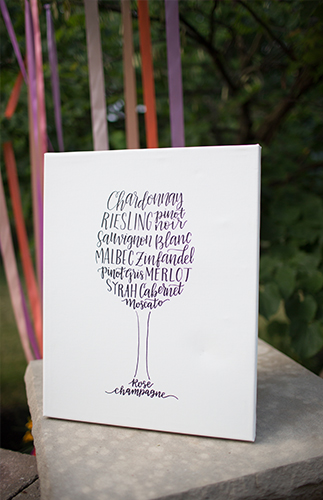 Chardonnay
RIESLING pinot noir
Sauvignon Blanc
MALBEC Zinfandel
Pinot Gris MERLOT
SYRAH Cabernet
Moscato
Rose
champagne